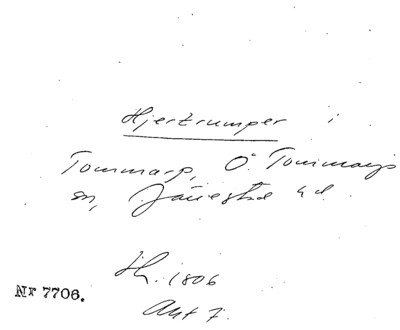 Hjertrumper i
Tommarp, Ö. Tommarps
sn, Järrestad hd.
Sk. 1806
Akt 7.
Nr 7706.